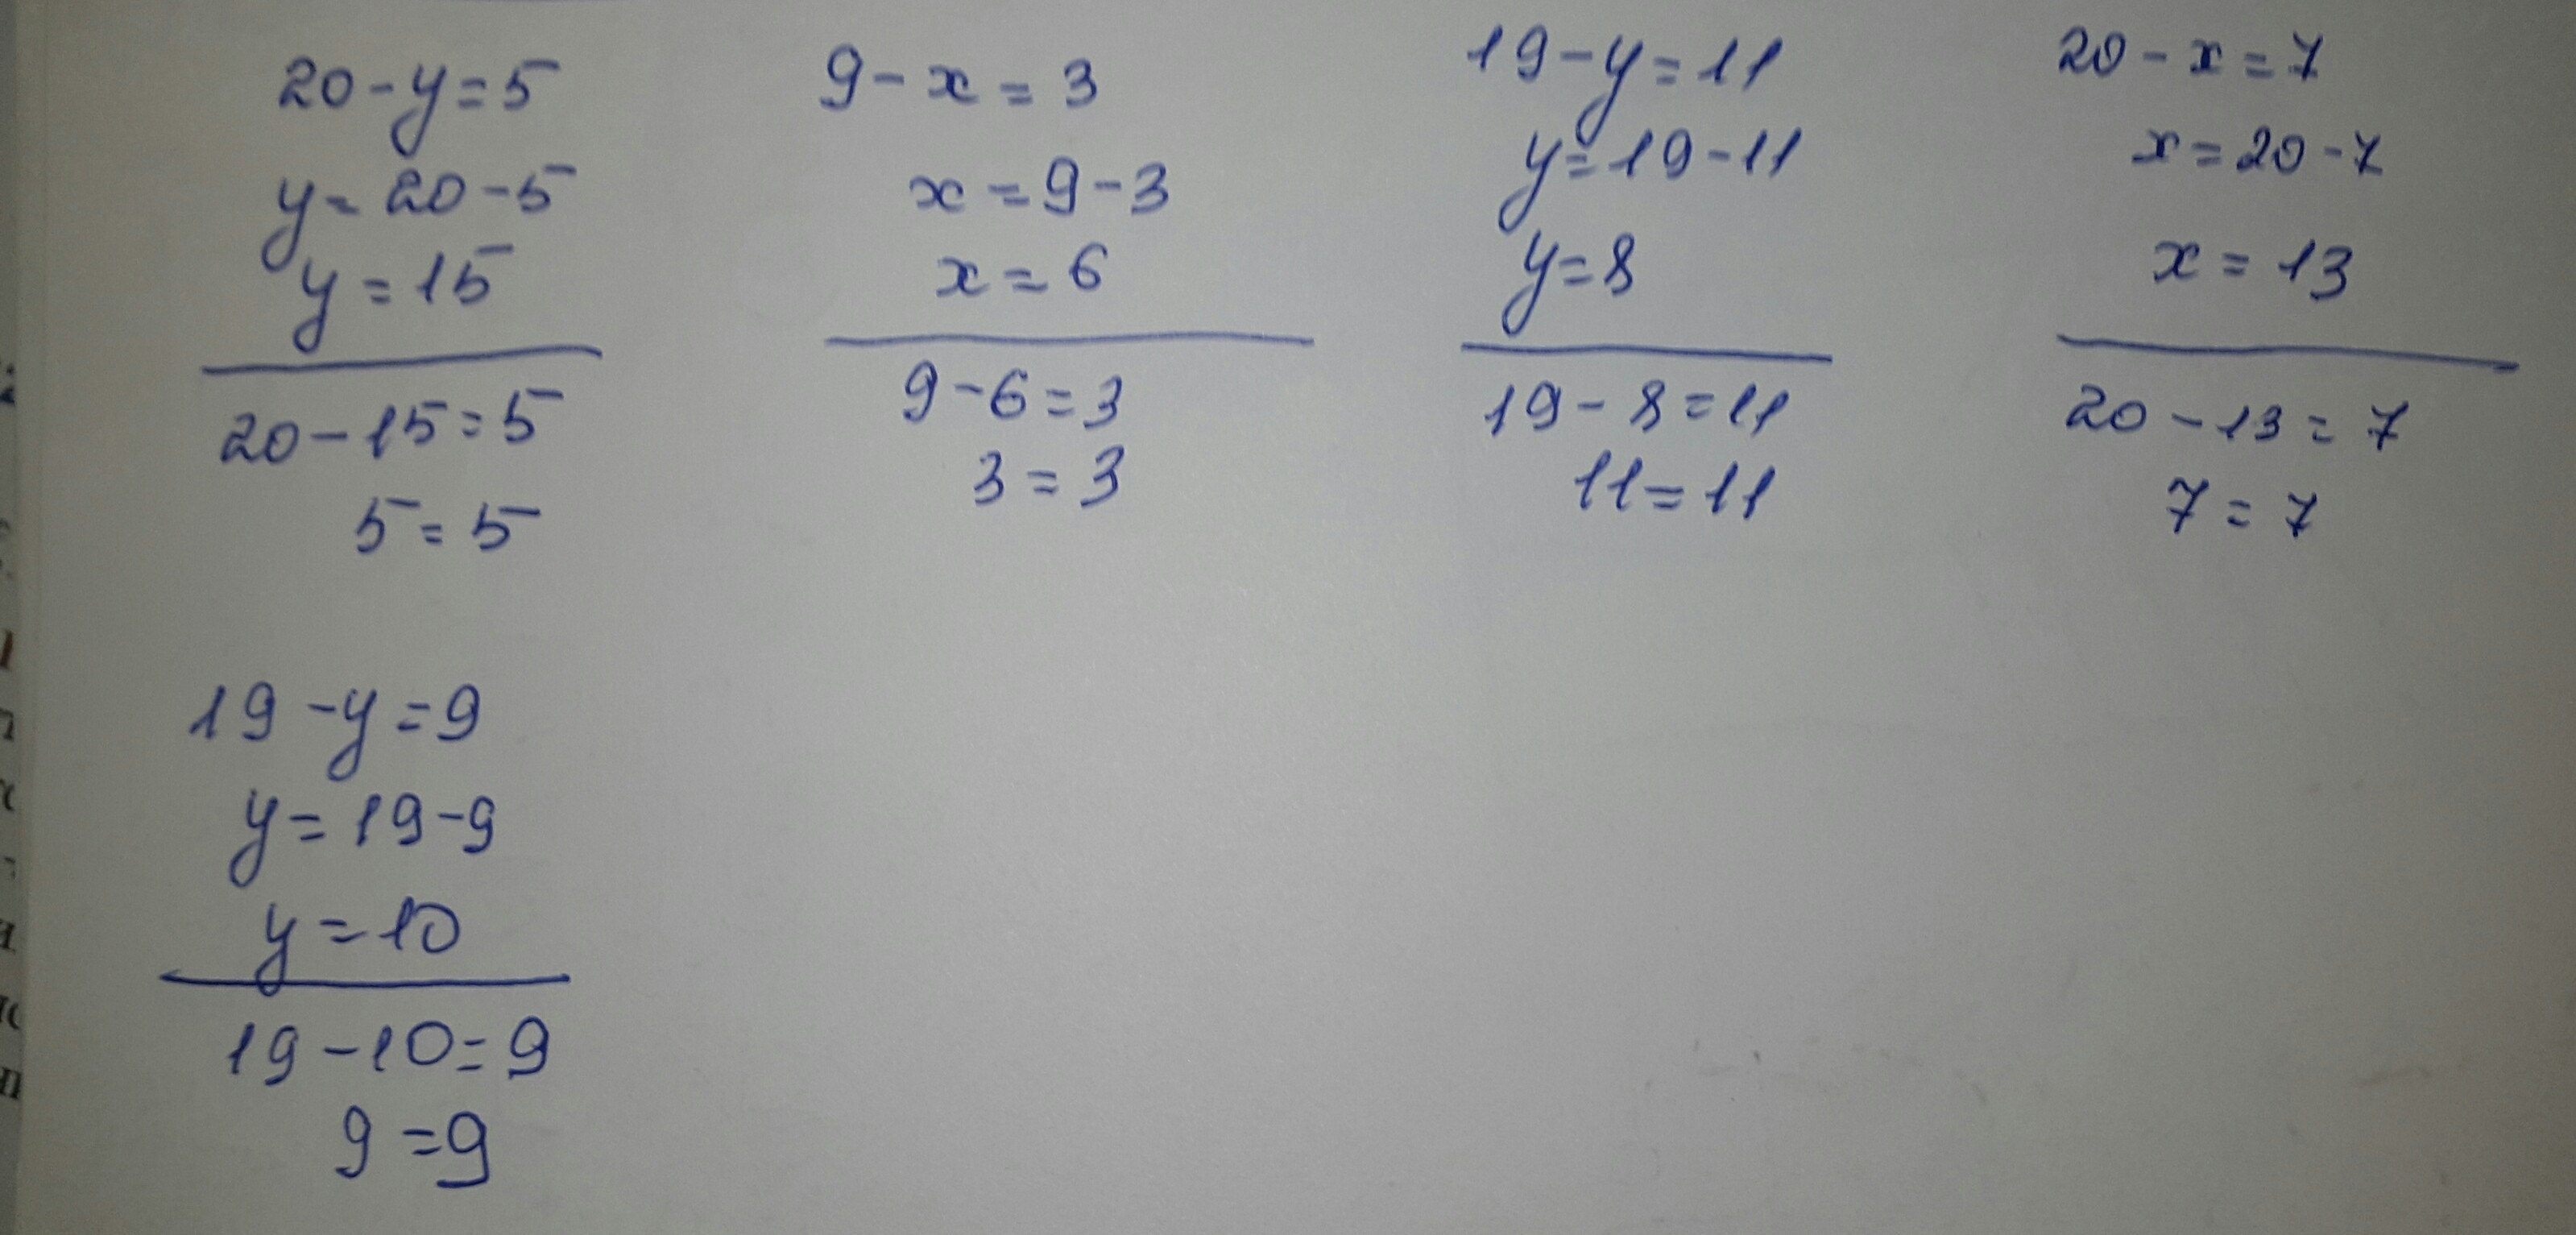 20 - y = 5
y = 20 - 5
y = 15
20 - 15 = 5
5 = 5
9 - x = 3
x = 9 - 3
x = 6
9 - 6 = 3
3 = 3
19 - y = 11
y = 19 - 11
y = 8
19 - 8 = 11
11 = 11
20 - x = 7
x = 20 - 7
x = 13
20 - 13 = 7
7 = 7
19 - y = 9
y = 19 - 9
y = 10
19 - 10 = 9
9 = 9